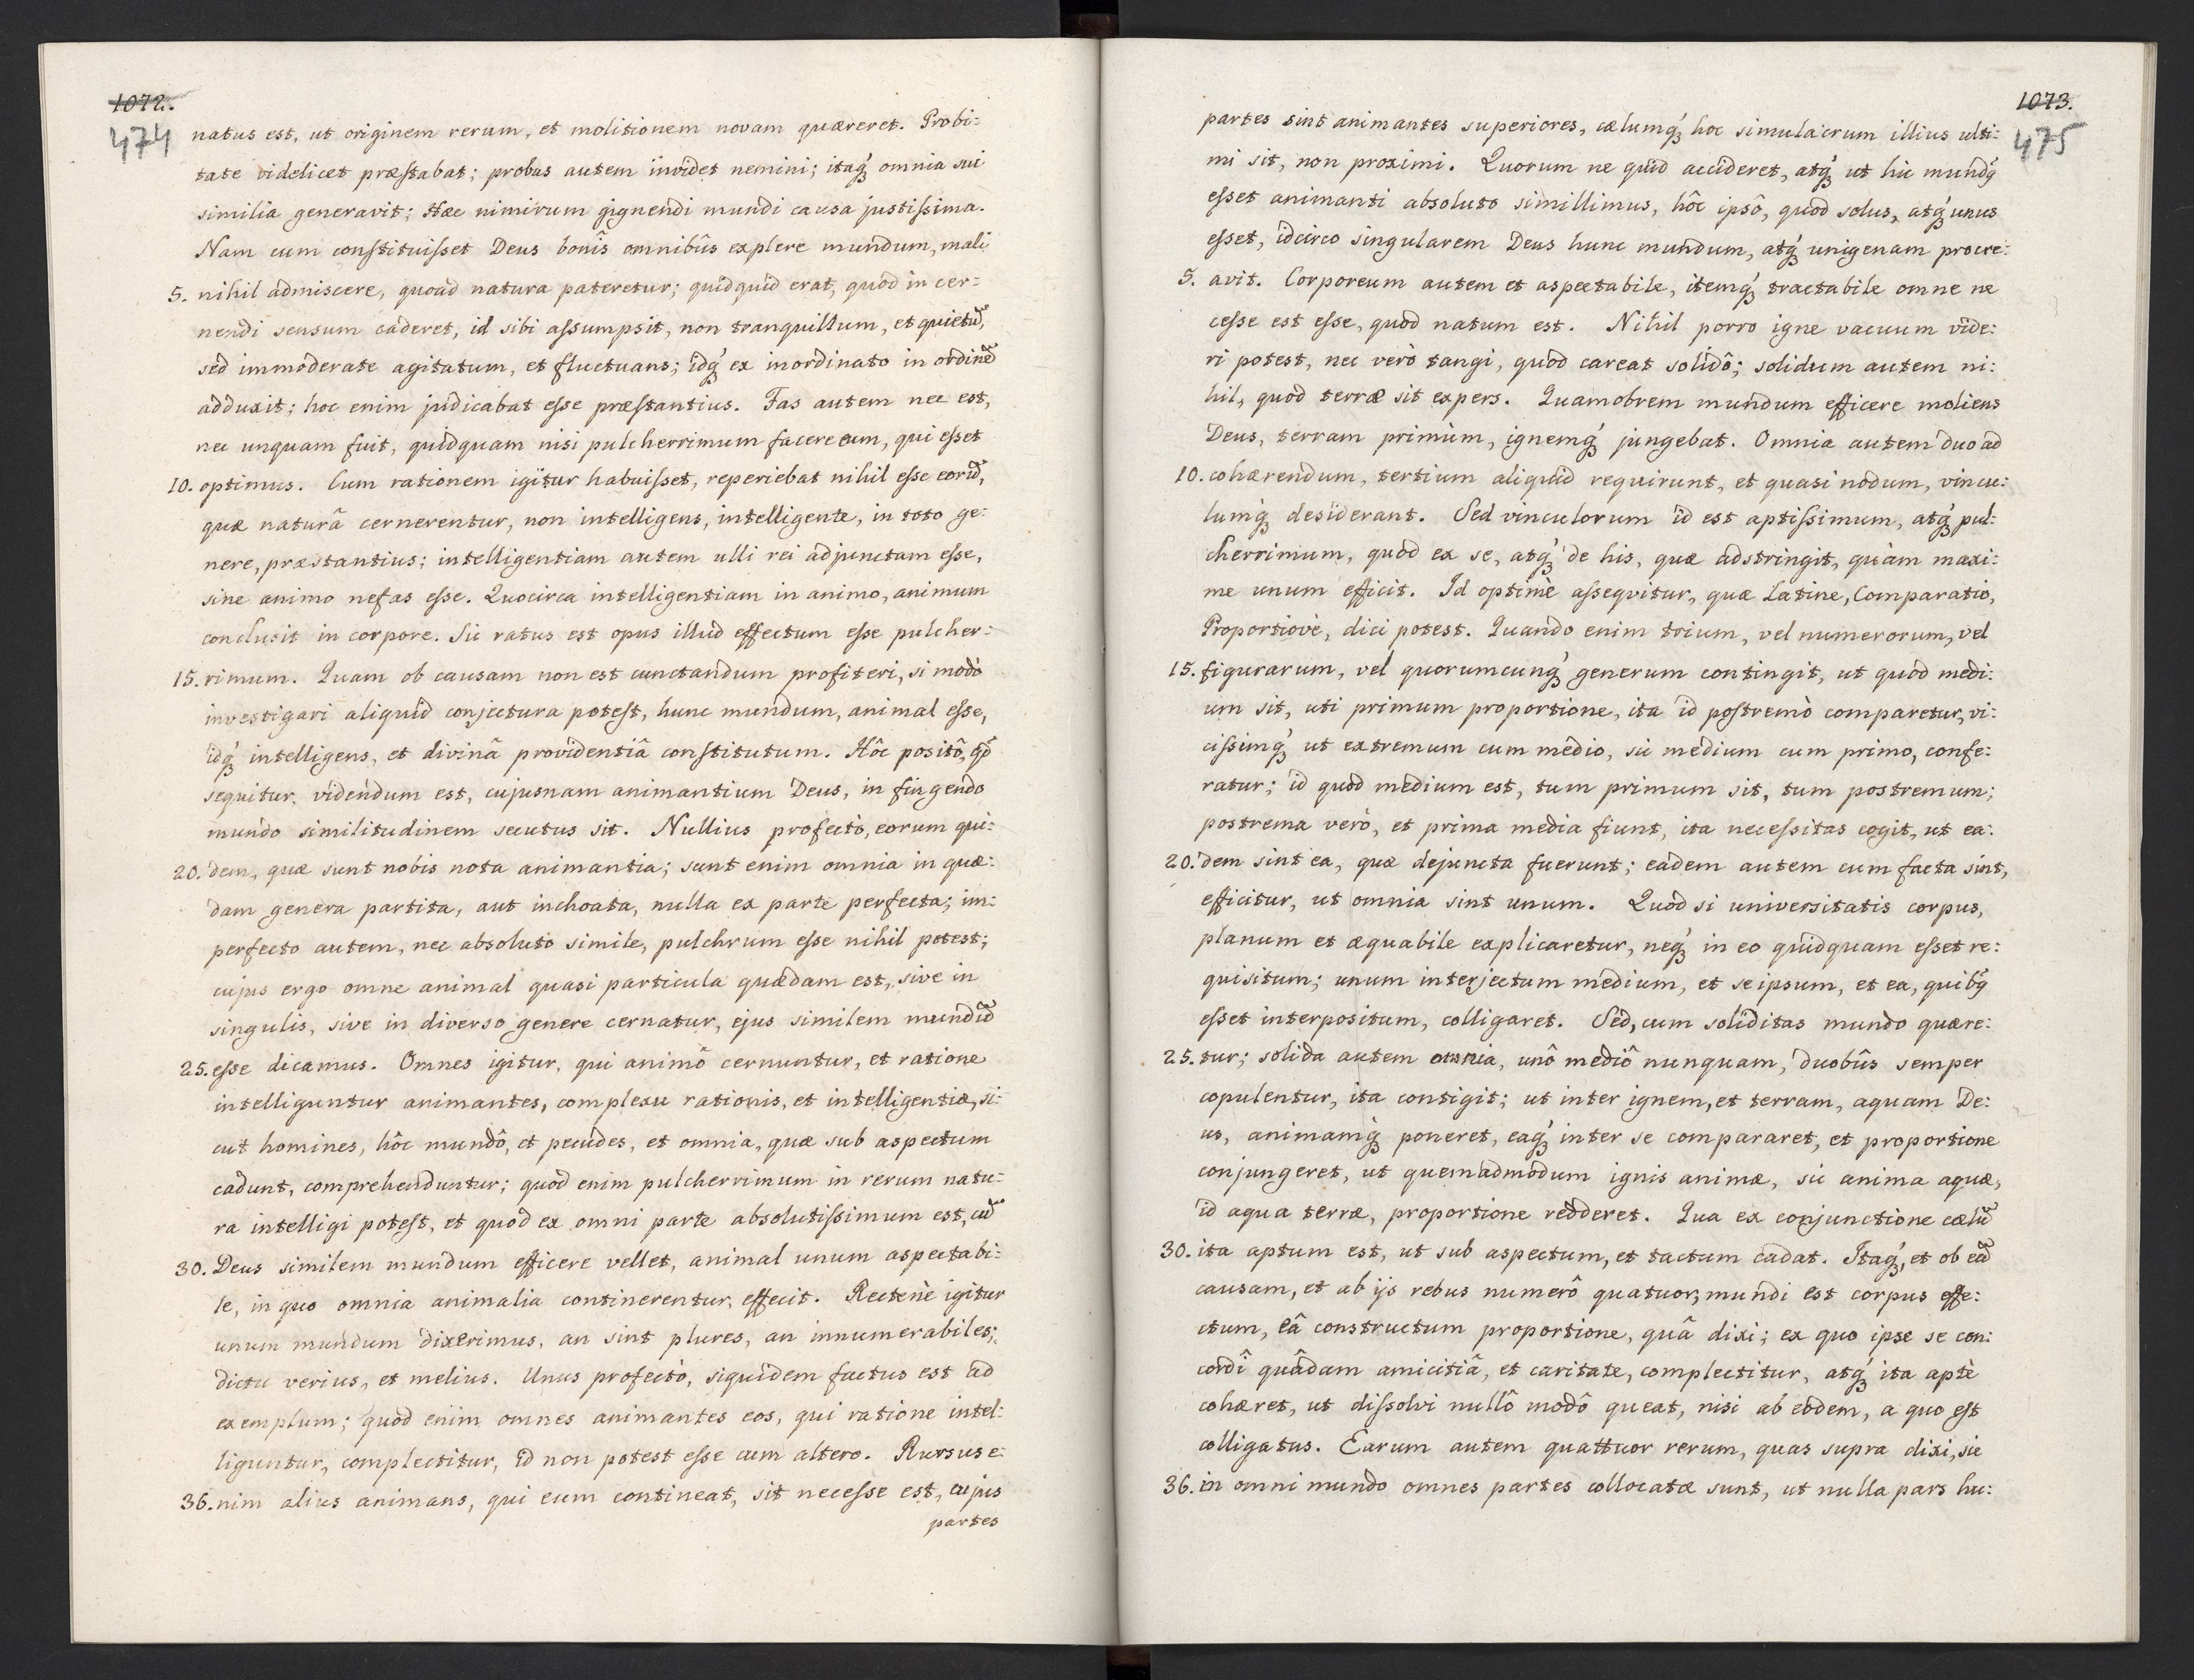 1072.
474
natus est, ut originem rerum, et molitionem novam quæreret. Probi:
tate videlicet præstabat; probus autem invidet nemini; itaq́ꝫ omnia sui
similia generavit; Hæc nimirum gignendi mundi causa justissima.
Nam cum constituisset Deus bonîs omnibûs explere mundum, mali
5. nihil admiscere, quoad natura pateretur; quidquid erat, quod in cer:
nendi sensum caderet, id sibi assumpsit, non tranquillum, et quietũ,
sed immoderate agitatum, et fluctuans; idq́ꝫ ex inordinato in ordinẽ
adduxit; hoc enim judicabat esse præstantius. Fas autem nec est,
nec unquam fuit, quidquam nisi pulcherrimum facere eum, qui esset
10. optimus. Cum rationem igitur habuisset, reperiebat nihil esse eorũ,
quæ naturâ cernerentur, non intelligens, intelligente, in toto ge:
nere, præstantius; intelligentiam autem ulli rei adjunctam esse,
sine animo nefas esse. Quocirca intelligentiam in animo, animum
conclusit in corpore. Sic ratus est opus illud effectum esse pulcher:
15. rimum. Quam ob causam non est cunctandum profiteri, si modò
investigari aliquid conjectura potest, hunc mundum, animal esse,
idq́ꝫ intelligens, et divinâ providentiâ constitutum. Hôc positô, qd̃
sequitur, videndum est, cujusnam animantium Deus, in fingendo
mundo similitudinem secutus sit. Nullius profectò, eorum qui:
20. dem, quæ sunt nobis nota animantia; sunt enim omnia in quæ:
dam genera partita, aut inchoata, nulla ex parte perfecta; im:
perfecto autem, nec absoluto simile, pulchrum esse nihil potest;
cujus ergo omne animal quasi particula quædam est, sive in
singulis, sive in diverso genere cernatur, ejus similem mundũ
25. esse dicamus. Omnes igitur, qui animô cernuntur, et ratione
intelliguntur animantes, complexu rationis, et intelligentiæ, si:
cut homines, hôc mundô, et pecudes, et omnia, quæ sub aspectum
cadunt, comprehenduntur; quod enim pulcherrimum in rerum natu:
ra intelligi potest, et quod ex omni parte absolutissimum est, cũ
30. Deus similem mundum efficere vellet, animal unum aspectabi:
le, in quo omnia animalia continerentur, effecit. Rectenè igitur
unum mundum dixerimus, an sint plures, an innumerabiles;
dictu verius, et melius. Unus profectò, siquidem factus est ad
exemplum; quod enim omnes animantes eos, qui ratione intel:
liguntur, complectitur, id non potest esse cum altero. Rursus e:
36. nim alius animans, qui eum contineat, sit necesse est, cujus
partes
1073.
475
partes sint animantes superiores, cælumq́ꝫ hoc simulacrum illius ulti:
mi sit, non proximi. Quorum ne quid accideret, atq́ꝫ ut hic mundꝰ
esset animanti absoluto simillimus, hôc ipsô, quod solus, atq́ꝫ unus
esset, idcirco singularem Deus hunc mundum, atq́ꝫ unigenam procre:
5. avit. Corporeum autem et aspectabile, itemq́ꝫ tractabile omne ne
cesse est esse, quod natum est. Nihil porro igne vacuum vide:
ri potest, nec verò tangi, quod careat solidô; solidum autem ni:
hil, quod terræ sit expers. Quamobrem mundum efficere moliens
Deus, terram primùm, ignemq́ꝫ jungebat. Omnia autem duo ad
10. cohærendum, tertium aliquid requirunt, et quasi nodum, vincu:
lumq́ꝫ desiderant. Sed vinculorum id est aptissimum, atq́ꝫ pul:
cherrimum, quod ex se, atq́ꝫ de his, quæ adstringit, quàm maxi:
me unum efficit. Id optimè asseqvitur, quæ Latine, Comparatio,
Proportiovè, dici potest. Quando enim trium, vel numerorum, vel
15. figurarum, vel quorumcunq́ꝫ generum contingit, ut quod medi:
um sit, uti primum proportione, ita id postremò comparetur, vi:
cissimq́ꝫ ut extremum cum medio, sic medium cum primo, confe:
ratur; id quod medium est, tum primum sit, tum postremum;
postrema verò, et prima media fiunt, ita necessitas cogit, ut ea:
20. dem sint ea, quæ dejuncta fuerunt; eadem autem cum facta sint,
efficitur, ut omnia sint unum. Quod si universitatis corpus,
planum et æquabile explicaretur, neq́ꝫ in eo quidquam esset re:
quisitum; unum interjectum medium, et se ipsum, et ea, quibꝰ
esset interpositum, colligaret. Sed, cum soliditas mundo quære:
25. tur; solida autem omnia, unô mediô nunquam, duobûs semper
copulentur, ita contigit; ut inter ignem, et terram, aquam De:
us, animamq́ꝫ poneret, eaq́ꝫ inter se compararet, et proportione
conjungeret, ut quemadmodum ignis animæ, sic anima aquæ,
id aqua terræ, proportione redderet. Qua ex conjunctione cælũ
30. ita aptum est, ut sub aspectum, et tactum cadat. Itaq́ꝫ, et ob eã
causam, et ab ijs rebus numerô quatuor, mundi est corpus effe:
ctum, eâ constructum proportione, quâ dixi; ex quo ipse se con:
cordî quâdam amicitiâ, et caritate, complectitur, atq́ꝫ ita aptè
cohæret, ut dissolvi nullô modô queat, nisi ab eodem, a quo est
colligatus. Earum autem quattuor rerum, quas supra dixi, sic
36. in omni mundo omnes partes collocatæ sunt, ut nulla pars hu: